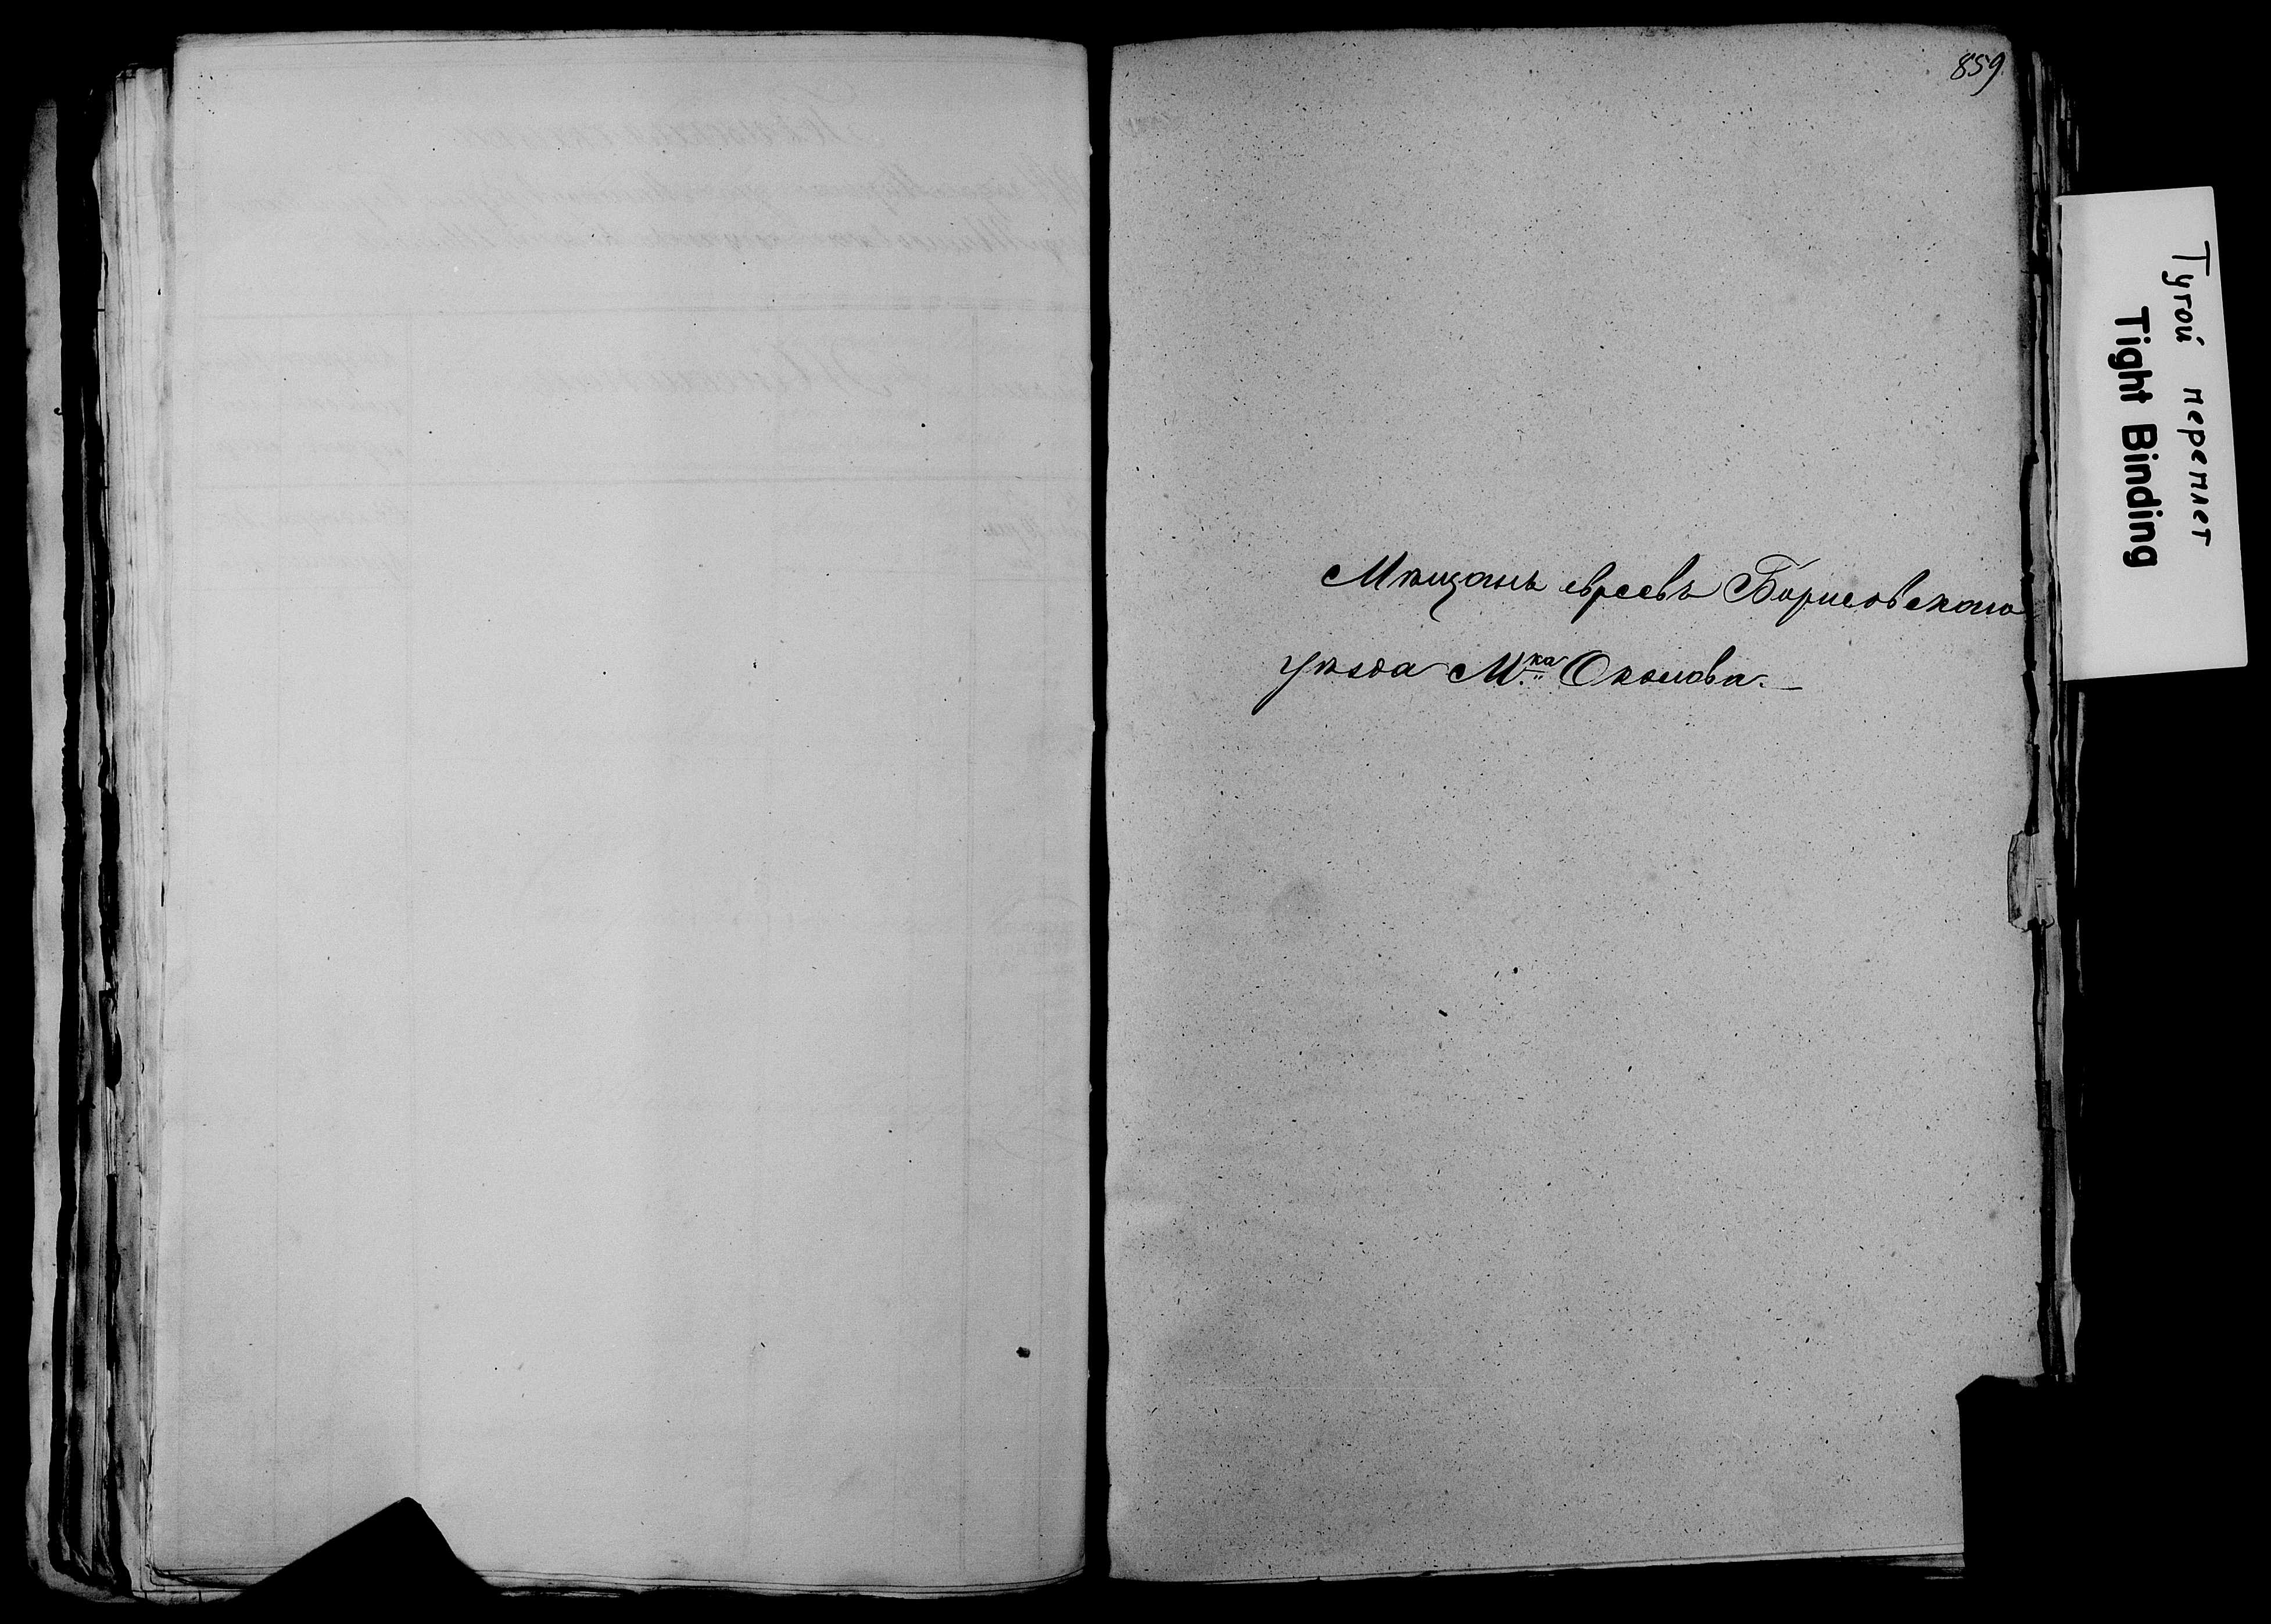 859.
Мѣщанъ евреевъ Борисовского
уѣзда М.ка Околова.
Тугой переплет
Tight Binding